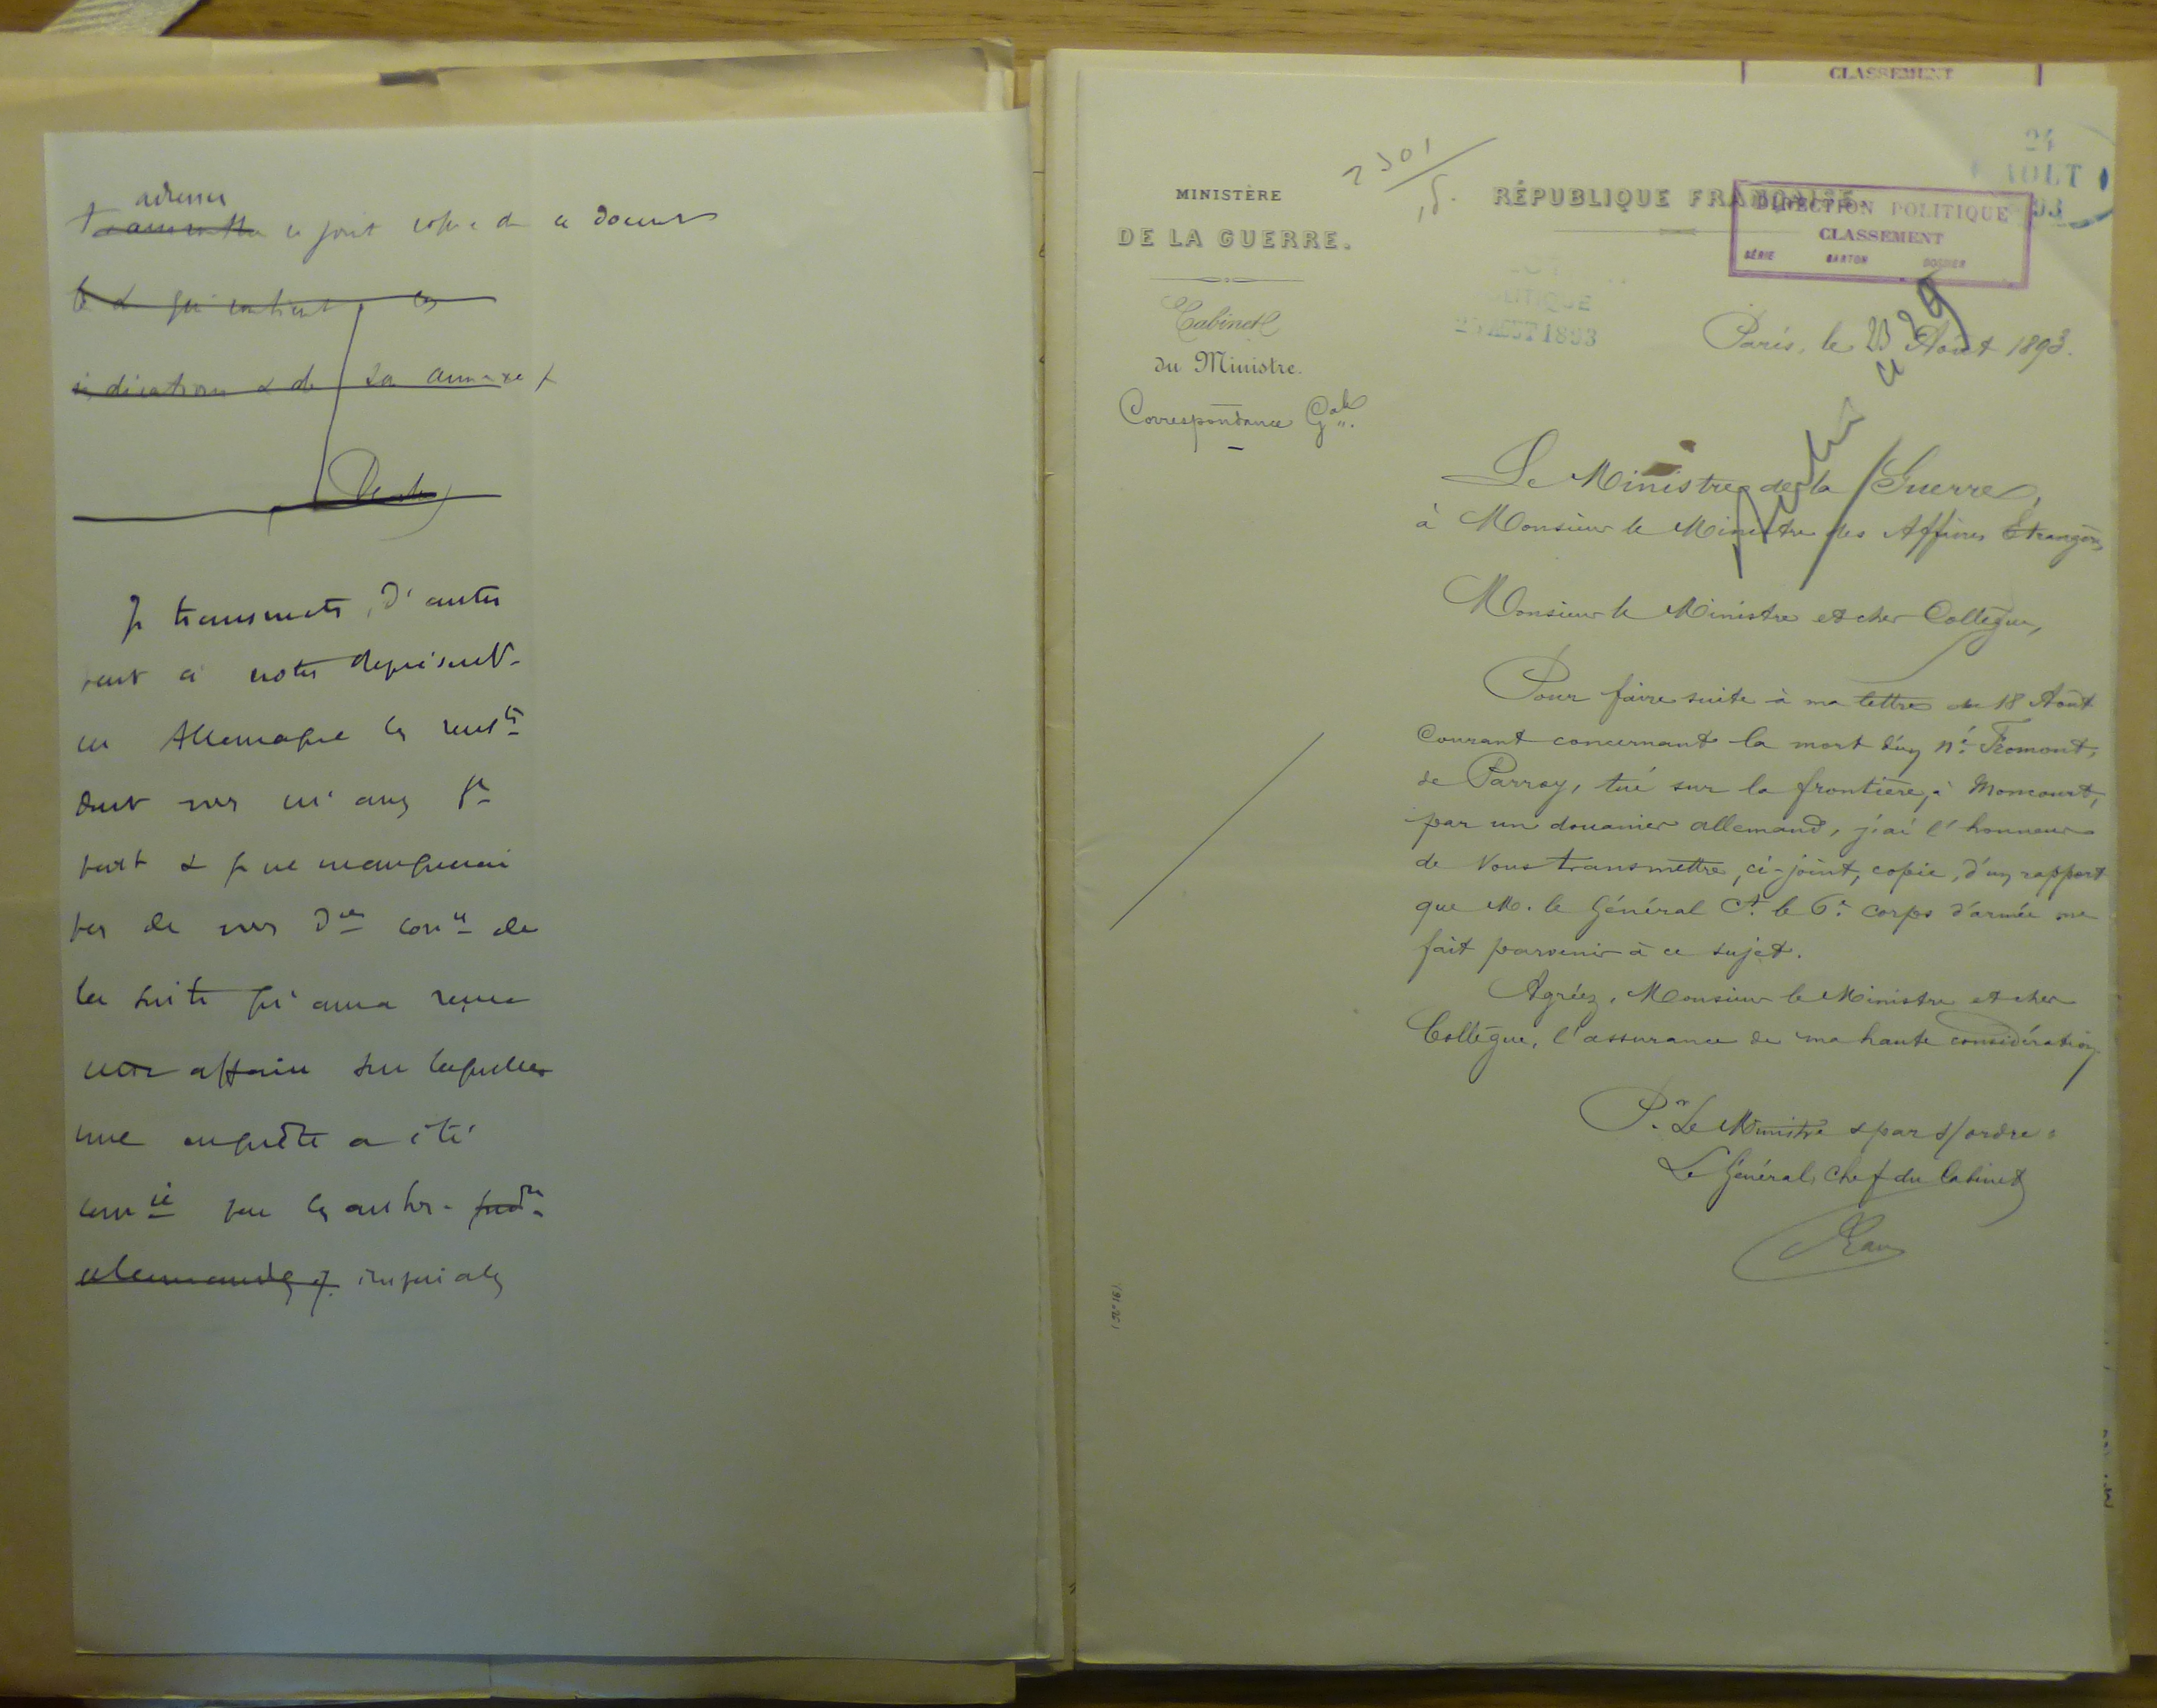 adresser
transmettre ci joint copie de ce docum
& qui contient les
indications & de sa annexe
Je transmets, d'autre
part à notre représent.
en Allemagne les rens.ts
dont vous m'avez f.
part & je ne manquerai
pas de vous d. con.. de
la suite qu'aura reçue
cette affaire sur laquelle
une enquête a été
comm.ée par les autor.
allemandes impériales
CLASSEMENT
24
AOUT
93
2301
15.
MINISTÈRE
DE LA GUERRE.
Cabinet
du Ministre.
Correspondance Gale.
RÉPUBLIQUE FRANÇAISE.
DIRECTION POLITIQUE
CLASSEMENT
SÉRIE CARTON DOSSIER
POLITIQUE
25 AOUT 1893
Paris, le 23 Août 1893.
ce 29
Le Ministre de la Guerre,
à Monsieur le Ministre des Affaires Etrangères
Monsieur le Ministre et cher Collègue,
Pour faire suite à ma lettre du 18 Août
Courant concernant la mort d'un né Fromont,
de Parroy, tué sur la frontière, à Moncourt,
par un douanier allemand, j'ai l'honneur
de Vous transmettre, ci-joint, copie, d'un rapport
que M. le Général Ct. le 6e corps d'armée me
fait parvenir à ce sujet.
Agréez, Monsieur le Ministre et cher
Collègue, l'assurance de ma haute considération
Pr. Le Ministre & par s/ordre:
Le Général, Chef du Cabinet